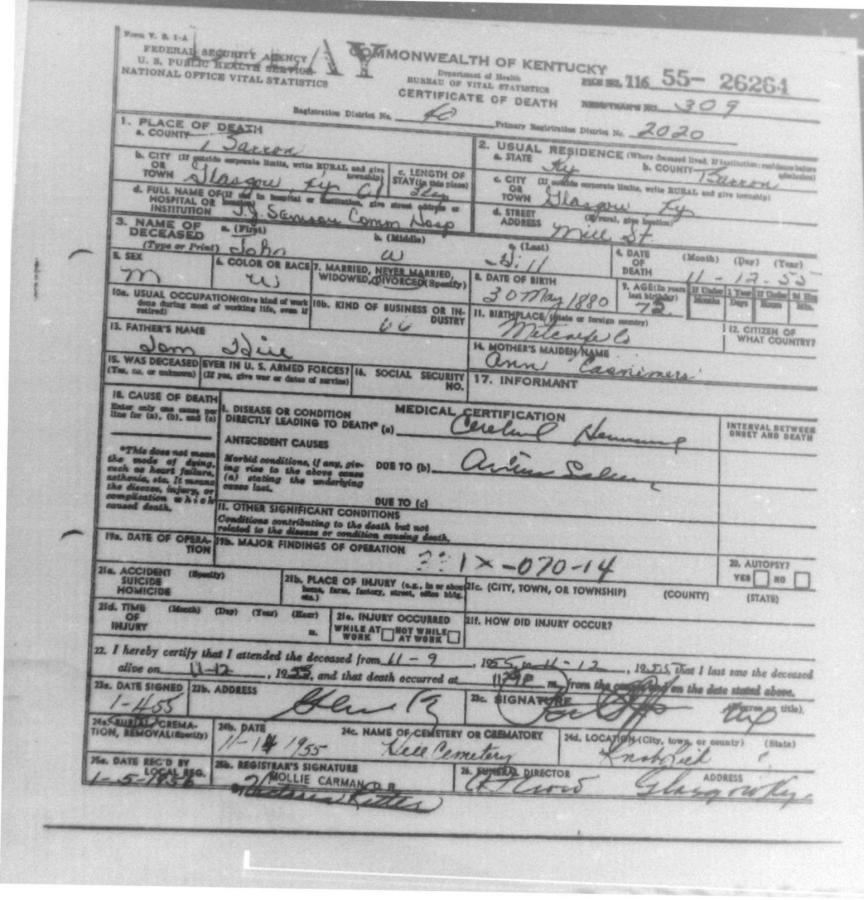 Form V. S. 1-A
FEDERAL SECURITY AGENCY
U. S. PUBLIC HEALTH SERVICE
NATIONAL OFFICE VITAL STATISTICS
COMMONWEALTH OF KENTUCKY
Department of Health
BUREAU OF VITAL STATISTICS
CERTIFICATE OF DEATH
FILE NO. 116 55- 26264
REGISTRAR'S NO. 309
Registration District No.
Primary Registration District No. 2020
1. PLACE OF DEATH
a. COUNTY Barron
b. CITY (If outside corporate limits, write RURAL and give township)
OR
TOWN Glasgow, Ky
c. LENGTH OF STAY (in this place)
d. FULL NAME OF (If not in hospital or institution, give street address or location)
HOSPITAL OR
INSTITUTION T J Samson Comm Hosp
2. USUAL RESIDENCE (Where deceased lived. If institution: residence before admission)
a. STATE Ky
b. COUNTY Barron
c. CITY (If outside corporate limits, write RURAL and give township)
OR
TOWN Glasgow Ky
d. STREET ADDRESS (If rural, give location) Mill St.
3. NAME OF DECEASED
(Type or Print)
a. (First) John
b. (Middle) W
c. (Last) Hill
4. DATE OF DEATH
(Month) (Day) (Year)
11-12-55
5. SEX M
6. COLOR OR RACE W
7. MARRIED, NEVER MARRIED, WIDOWED, DIVORCED (Specify)
8. DATE OF BIRTH 30 May 1880
9. AGE (In years last birthday) 75
If Under 1 Year
Months Days
If Under 24 Hrs
Hours Min.
10a. USUAL OCCUPATION (Give kind of work done during most of working life, even if retired)
10b. KIND OF BUSINESS OR INDUSTRY
11. BIRTHPLACE (State or foreign country) Metcalfe Co
12. CITIZEN OF WHAT COUNTRY?
13. FATHER'S NAME
Tom Hill
14. MOTHER'S MAIDEN NAME
Ann
15. WAS DECEASED EVER IN U. S. ARMED FORCES?
(Yes, no, or unknown) (If yes, give war or dates of service)
16. SOCIAL SECURITY NO.
17. INFORMANT
18. CAUSE OF DEATH
Enter only one cause per line for (a), (b), and (c)
*This does not mean the mode of dying, such as heart failure, asthenia, etc. It means the disease, injury, or complication which caused death.
MEDICAL CERTIFICATION
I. DISEASE OR CONDITION DIRECTLY LEADING TO DEATH* (a) Cerebral
INTERVAL BETWEEN ONSET AND DEATH
ANTECEDENT CAUSES
Morbid conditions, if any, giving rise to the above cause (a) stating the underlying cause last.
DUE TO (b)
DUE TO (c)
II. OTHER SIGNIFICANT CONDITIONS
Conditions contributing to the death but not related to the disease or condition causing death.
19a. DATE OF OPERATION
19b. MAJOR FINDINGS OF OPERATION
1X-070-14
20. AUTOPSY?
YES NO
21a. ACCIDENT SUICIDE HOMICIDE (Specify)
21b. PLACE OF INJURY (e.g., in or about home, farm, factory, street, office bldg. etc.)
21c. (CITY, TOWN, OR TOWNSHIP) (COUNTY) (STATE)
21d. TIME OF INJURY (Month) (Day) (Year) (Hour) m.
21e. INJURY OCCURRED
WHILE AT WORK NOT WHILE AT WORK
21f. HOW DID INJURY OCCUR?
22. I hereby certify that I attended the deceased from 11-9, 1955, to 11-12, 1955, that I last saw the deceased
alive on 11-12, 1955, and that death occurred at m., from the causes and on the date stated above.
23a. DATE SIGNED
1-4-55
23b. ADDRESS
23c. SIGNATURE
(Degree or title).
24a. BURIAL, CREMATION, REMOVAL (Specify)
24b. DATE
11-14 1955
24c. NAME OF CEMETERY OR CREMATORY
Hill Cemetery
24d. LOCATION (City, town, or county) (State)
Knob Lick
25a. DATE REC'D BY LOCAL REG.
1-5-1956
25b. REGISTRAR'S SIGNATURE
MOLLIE CARMAN D. R.
26. FUNERAL DIRECTOR
ADDRESS
Glasgow Ky